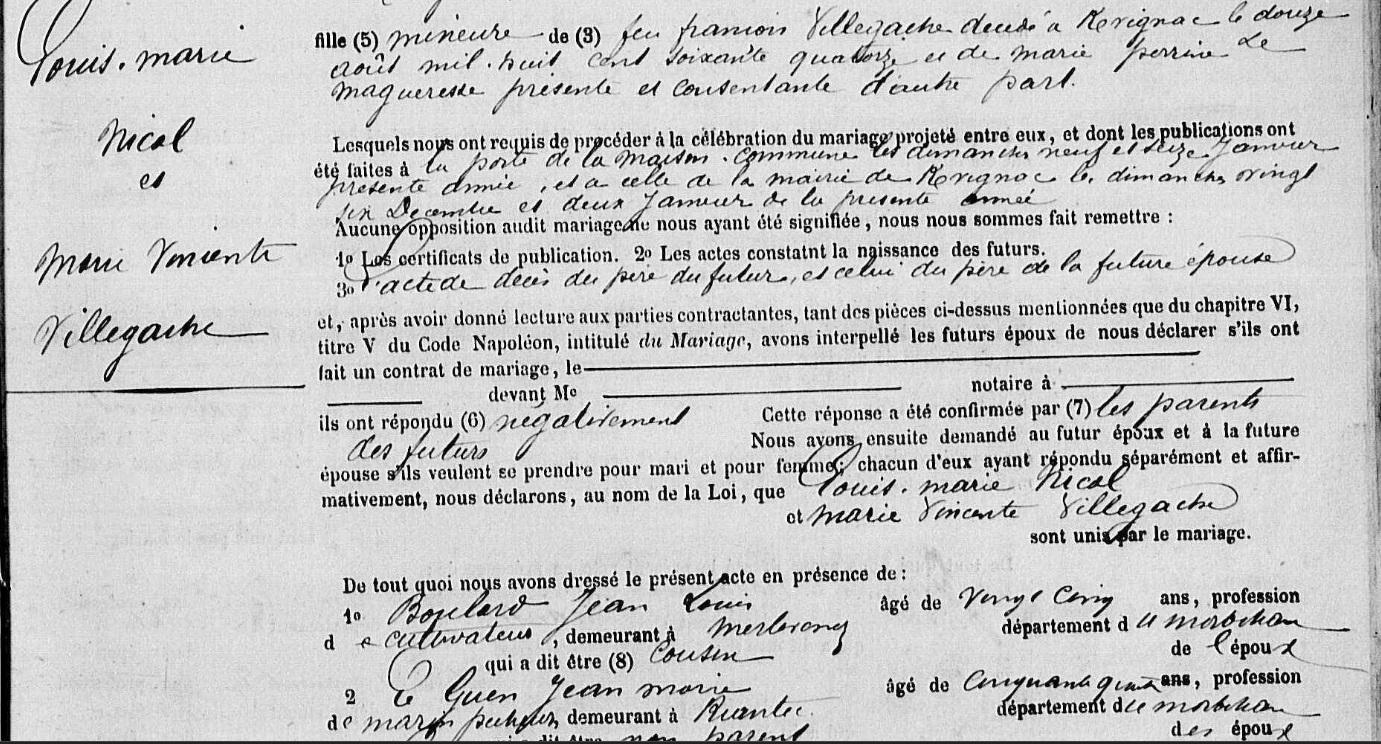 Louis. marie
Nicol
et
Marie Vincente
Villegache
fille (5) mineure de (3) feu francois Villegache decedé a Kvignac le douze
août mil. huit cent soixante quatorze et de marie perrine Le
magueresse présente et consentante d'autre part.
Lesquels nous ont requis de procéder à la célébration du mariage projeté entre eux, et dont les publications ont
été faites à la porte de la maison. commune les dimanches neuf et seize Janvier
présente année, et a celle de la mairie de Kvignac les dimanches vingt
six Decembre et deux Janvier de la presente année
Aucune opposition audit mariage ne nous ayant été signifiée, nous nous sommes fait remettre :
1o Les certificats de publication. 2o Les actes constatnt la naissance des futurs.
3o L'acte de décès du père du futur, et celui du père de la future épouse
et, après avoir donné lecture aux parties contractantes, tant des pièces ci-dessus mentionnées que du chapitre VI,
titre V du Code Napoléon, intitulé du Mariage, avons interpellé les futurs époux de nous déclarer s'ils ont
fait un contrat de mariage, le
devant Me notaire à
ils ont répondu (6) negativement Cette réponse a été confirmée par (7) les parents
des futurs Nous avons ensuite demandé au futur époux et à la future
épouse s'ils veulent se prendre pour mari et pour femme; chacun d'eux ayant répondu séparément et affir-
mativement, nous déclarons, au nom de la Loi, que Louis. marie Nicol
et marie Vincente Villegache
sont unis par le mariage.
De tout quoi nous avons dressé le présent acte en présence de :
1o Boulard Jean Louis âgé de vingt cinq ans, profession
d e cultivateur, demeurant à département du morbihan
qui a dit être (8) Cousin de l'époux
2 Le Guen Jean marie âgé de Cinquante ans, profession
de marin pecheur, demeurant à Riantec département du morbihan
non parent des époux